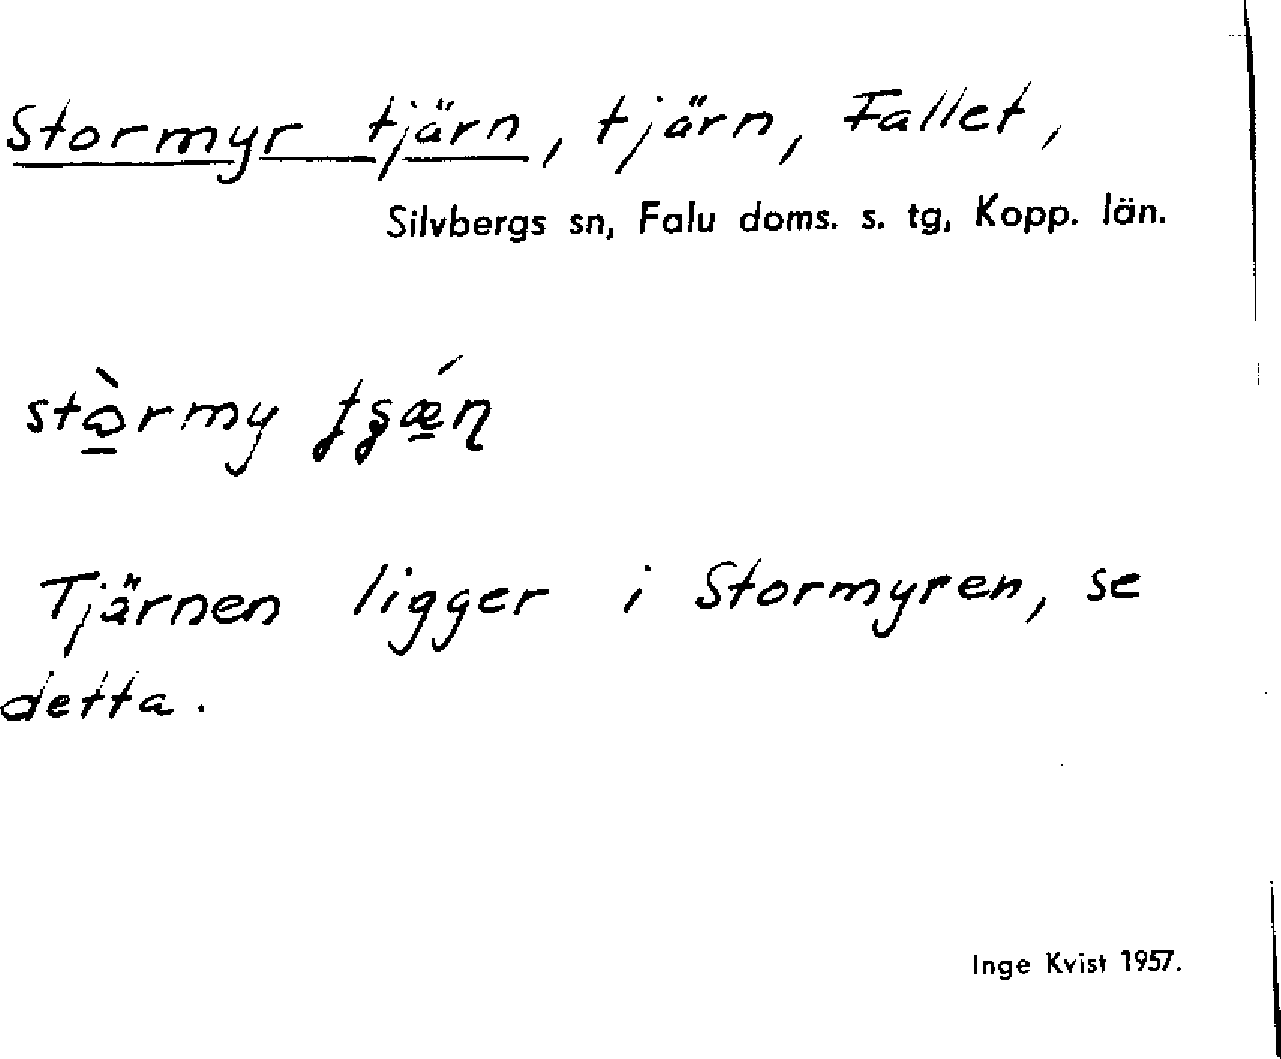 Stormyr tjärn, tjärn, Fallet,
Silvbergs sn, Falu doms. s. tg, Kopp. län.
Tjärnen ligger i Stormyren, se
detta.
Inge Kvist 1957.